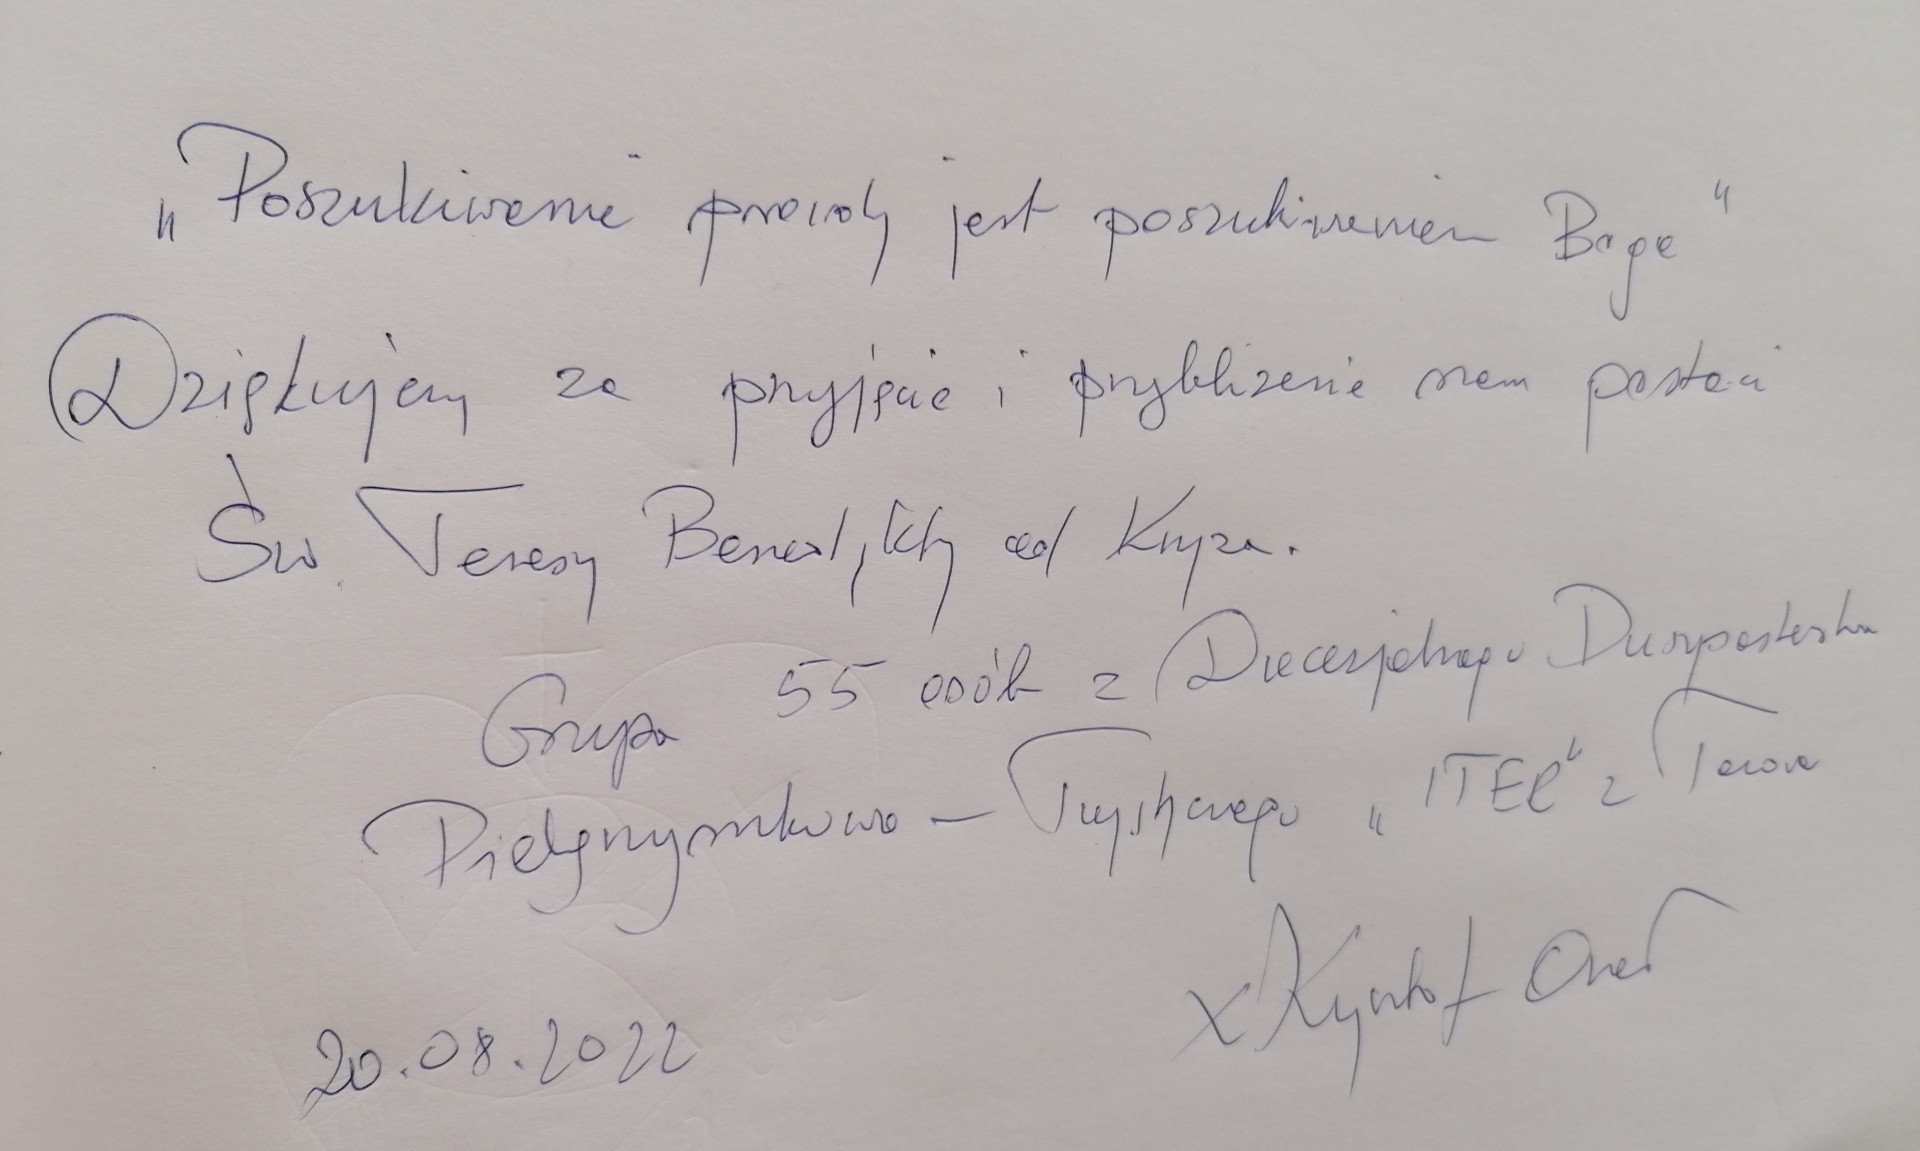 „Poszukiwanie prawdy jest poszukiwaniem Boga"
Dziękujemy za przyjęcie i przybliżenie nam postaci
Św. Teresy Benedykty od Krzyża.
Grupa 55 osób z Diecezjalnego Duszpasterstwa
Pielgrzymkowo – Turystycznego „ITER" z
x Krzysztof
20.08.2022